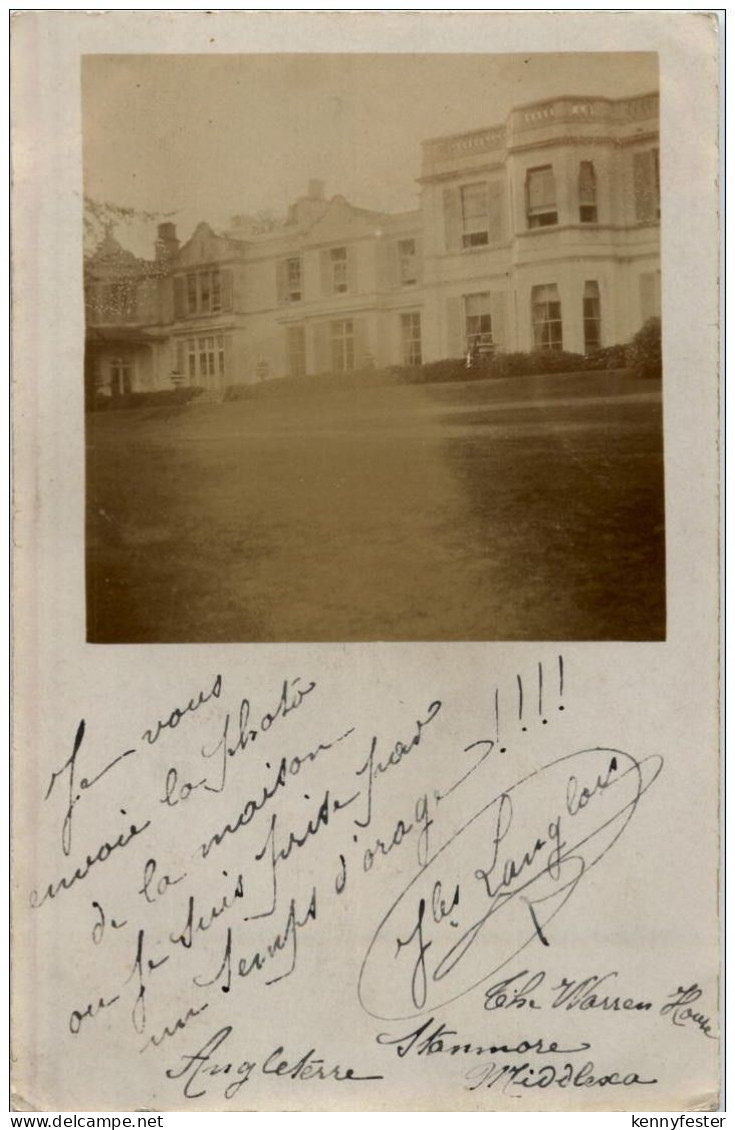 Je vous
envoie la photo
de la maison
ou Je suis prise par
un temps d'orage !!!!
Jles Langlois
The Warren House
Stanmore
Middlexa
Angletérre
kennyfester